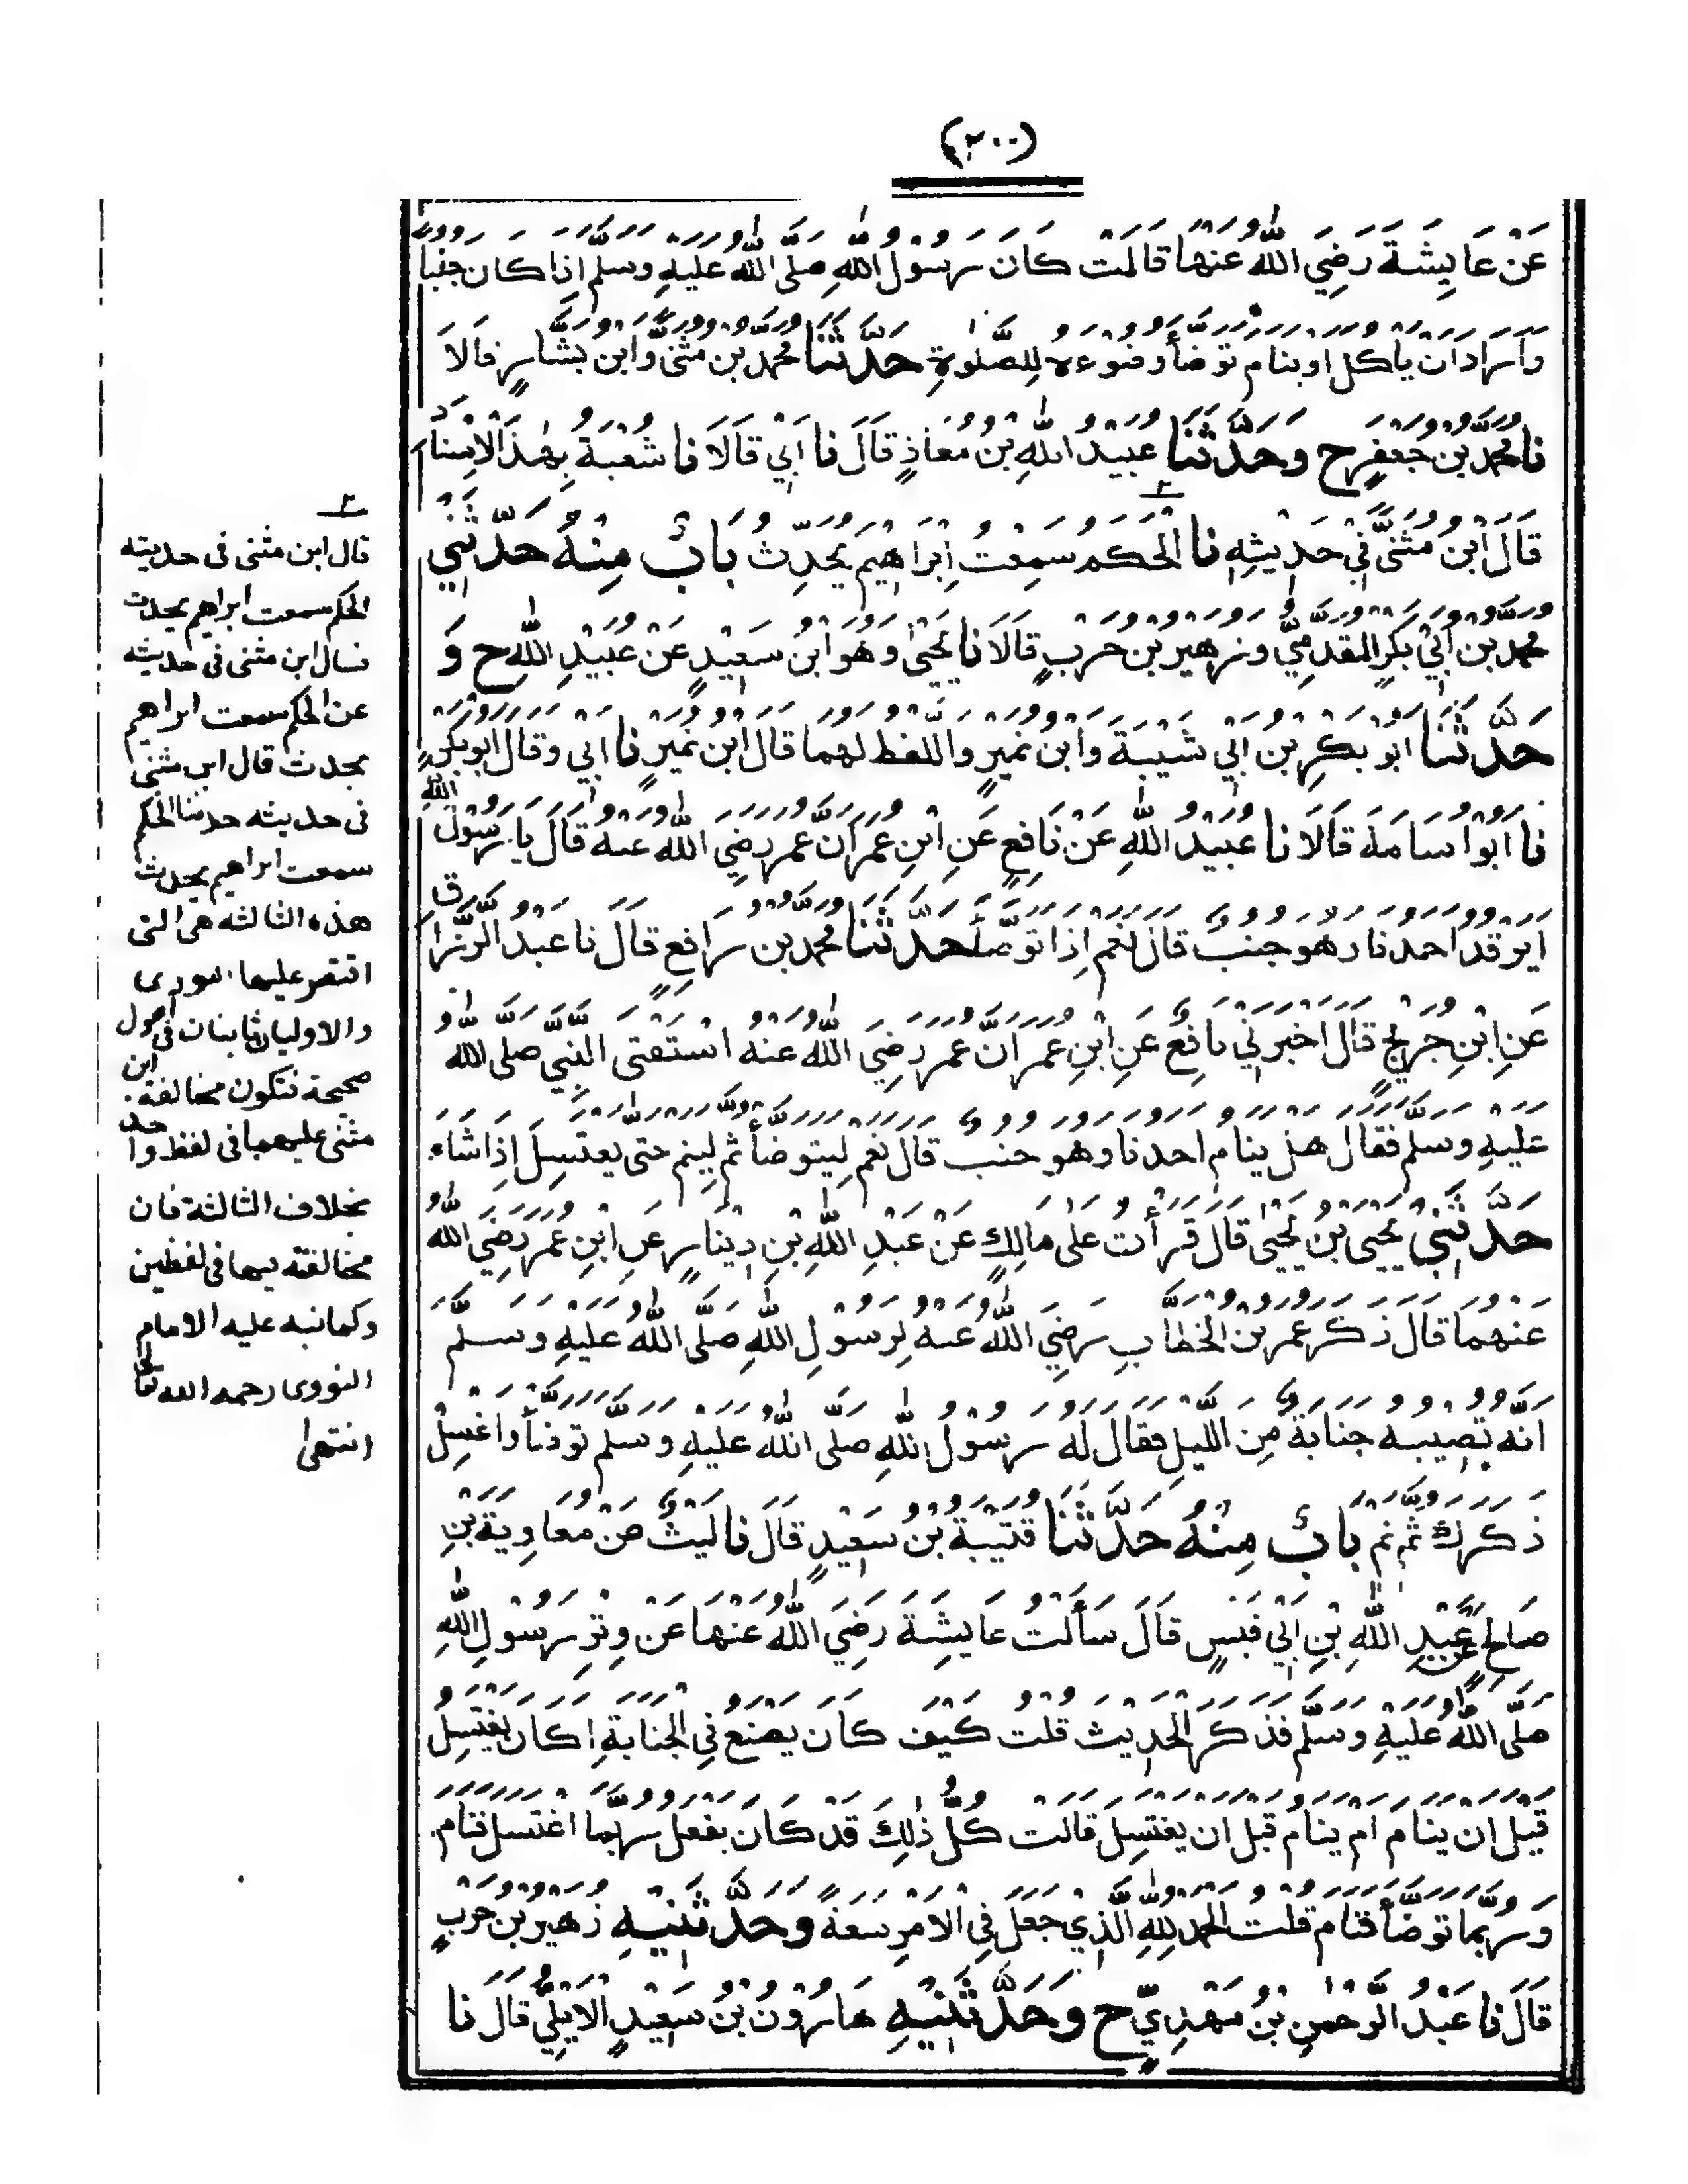 (٢٠٠)
عَنْ عَايِشَةَ رَضِيَ اللّٰهُ عَنْهَا قَالَتْ كَانَ رَسُولُ اللّٰهِ صَلَّى اللّٰهُ عَلَيْهِ وَسَلَّمَ إِذَا كَانَ جُنُبًا
وَأَرَادَ أَنْ يَأْكُلَ أَوْ يَنَامَ تَوَضَّأَ وُضُوْءَهٗ لِلصَّلٰوةِ حَدَّثَنَا مُحَمَّدُ بْنُ مُثَنًّى وَابْنُ بَشَّارٍ قَالَا
نَا مُحَمَّدُ بْنُ جَعْفَرٍ ح وَحَدَّثَنَا عُبَيْدُ اللّٰهِ بْنُ مُعَاذٍ قَالَ نَا أَبِيْ قَالَا نَا شُعْبَةُ بِهٰذَا الْإِسْنَادِ
قَالَ ابْنُ مُثَنًّى فِيْ حَدِيْثِهٖ نَا الْحَكَمُ سَمِعْتُ إِبْرَاهِيْمَ يُحَدِّثُ بَابٌ مِنْهُ حَدَّثَنِيْ
مُحَمَّدُ بْنُ أَبِيْ بَكْرٍ الْمُقَدَّمِيُّ وَزُهَيْرُ بْنُ حَرْبٍ قَالَا نَا يَحْيٰى وَهُوَ ابْنُ سَعِيْدٍ عَنْ عُبَيْدِ اللّٰهِ ح وَ
حَدَّثَنَا أَبُوْ بَكْرِ بْنُ أَبِيْ شَيْبَةَ وَابْنُ نُمَيْرٍ وَاللَّفْظُ لَهُمَا قَالَ ابْنُ نُمَيْرٍ نَا أَبِيْ وَقَالَ أَبُوْ بَكْرٍ
نَا أَبُوْ أُسَامَةَ قَالَا نَا عُبَيْدُ اللّٰهِ عَنْ نَافِعٍ عَنِ ابْنِ عُمَرَ أَنَّ عُمَرَ رَضِيَ اللّٰهُ عَنْهُ قَالَ يَا رَسُوْلَ اللّٰهِ
أَيَرْقُدُ أَحَدُنَا وَهُوَ جُنُبٌ قَالَ نَعَمْ إِذَا تَوَضَّأَ حَدَّثَنَا مُحَمَّدُ بْنُ رَافِعٍ قَالَ نَا عَبْدُ الرَّزَّاقِ
عَنِ ابْنِ جُرَيْجٍ قَالَ أَخْبَرَنِيْ نَافِعٌ عَنِ ابْنِ عُمَرَ أَنَّ عُمَرَ رَضِيَ اللّٰهُ عَنْهُ اسْتَفْتَى النَّبِيَّ صَلَّى اللّٰهُ
عَلَيْهِ وَسَلَّمَ فَقَالَ هَلْ يَنَامُ أَحَدُنَا وَهُوَ جُنُبٌ قَالَ نَعَمْ لِيَتَوَضَّأْ ثُمَّ لِيَنَمْ حَتَّى يَغْتَسِلَ إِذَا شَاءَ
حَدَّثَنِيْ يَحْيَى بْنُ يَحْيٰى قَالَ قَرَأْتُ عَلٰى مَالِكٍ عَنْ عَبْدِ اللّٰهِ بْنِ دِيْنَارٍ عَنِ ابْنِ عُمَرَ رَضِيَ اللّٰهُ
عَنْهُمَا قَالَ ذَكَرَ عُمَرُ بْنُ الْخَطَّابِ رَضِيَ اللّٰهُ عَنْهُ لِرَسُوْلِ اللّٰهِ صَلَّى اللّٰهُ عَلَيْهِ وَسَلَّمَ
أَنَّهٗ تُصِيْبُهٗ جَنَابَةٌ مِنَ اللَّيْلِ فَقَالَ لَهٗ رَسُوْلُ اللّٰهِ صَلَّى اللّٰهُ عَلَيْهِ وَسَلَّمَ تَوَضَّأْ وَاغْسِلْ
ذَكَرَكَ ثُمَّ نَمْ بَابٌ مِنْهُ حَدَّثَنَا قُتَيْبَةُ بْنُ سَعِيْدٍ قَالَ نَا لَيْثٌ عَنْ مُعَاوِيَةَ بْنِ
صَالِحٍ عَنْ عَبْدِ اللّٰهِ بْنِ أَبِيْ قَيْسٍ قَالَ سَأَلْتُ عَايِشَةَ رَضِيَ اللّٰهُ عَنْهَا عَنْ وِتْرِ رَسُوْلِ اللّٰهِ
صَلَّى اللّٰهُ عَلَيْهِ وَسَلَّمَ فَذَكَرَ الْحَدِيْثَ قُلْتُ كَيْفَ كَانَ يَصْنَعُ فِي الْجَنَابَةِ أَكَانَ يَغْتَسِلُ
قَبْلَ أَنْ يَنَامَ أَمْ يَنَامُ قَبْلَ أَنْ يَغْتَسِلَ قَالَتْ كُلُّ ذٰلِكَ قَدْ كَانَ يَفْعَلُ رُبَّمَا اغْتَسَلَ فَنَامَ
وَرُبَّمَا تَوَضَّأَ فَنَامَ قُلْتُ الْحَمْدُ لِلّٰهِ الَّذِيْ جَعَلَ فِي الْأَمْرِ سَعَةً وَحَدَّثَنِيْهِ زُهَيْرُ بْنُ حَرْبٍ
قَالَ نَا عَبْدُ الرَّحْمٰنِ بْنُ مَهْدِيٍّ ح وَحَدَّثَنِيْهِ هَارُوْنُ بْنُ سَعِيْدٍ الْأَيْلِيُّ قَالَ نَا
٢
قال ابن مثنى فى حديثه
الحكم سمعت ابراهيم يحدث
قال ابن مثنى فى حديثه
عن الحكم سمعت ابراهيم
يحدث قال ابن مثنى
فى حديثه حدثنا الحكم
سمعت ابراهيم يحدث
هذه الثالثه هى التى
اقتصر عليها النورى
والاوليان ثابتان فى اصول
صحيحة فتكون مخالفة ابن
مثنى عليهما فى لفظ واحد
بخلاف الثالثة فان
مخالفته فيها فى لفظين
وكما نبه عليه الامام
النووى رحمه الله تعالى
انتهى